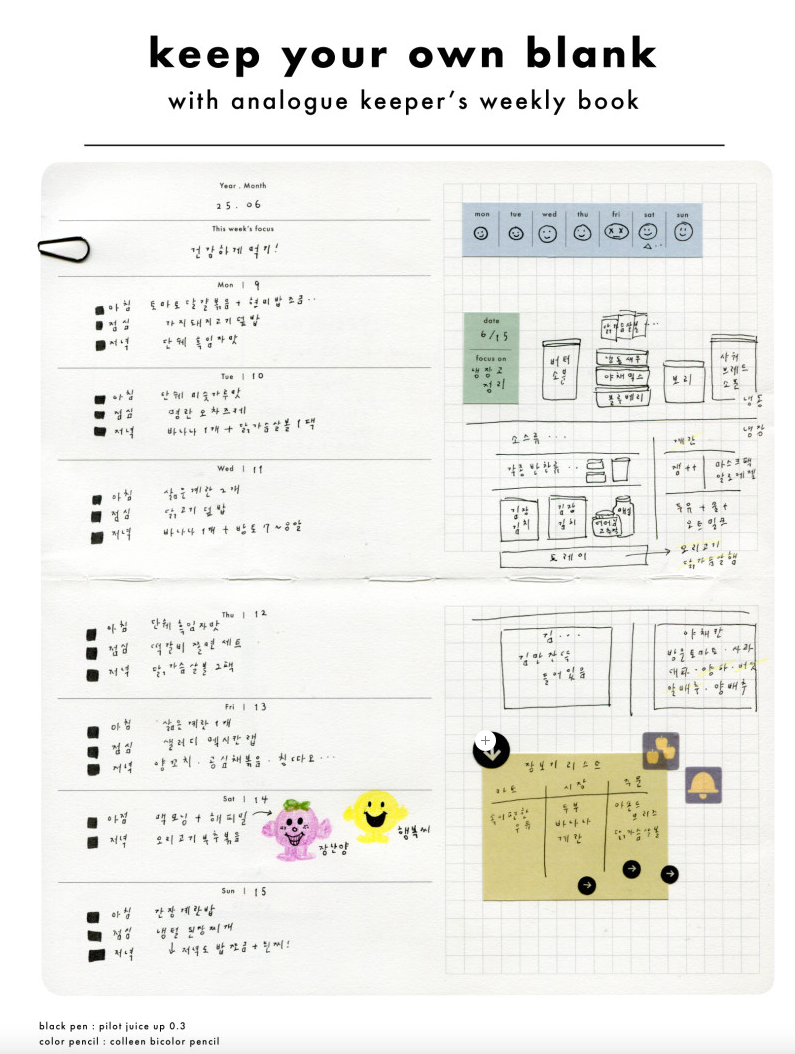 keep your own blank
with analogue keeper's weekly book
Year . Month
25 . 06
This week's focus
건강하게 먹기!
Mon | 9
아침 토마토달걀볶음 + 현미밥 조금..
점심 가지돼지고기덮밥
저녁 단쉐 흑임자맛
Tue | 10
아침 단쉐 미숫가루맛
점심 명란 오차즈케
저녁 바나나 1개 + 닭가슴살볼 1팩
Wed | 11
아침 삶은계란 2개
점심 닭고기 덮밥
저녁 바나나 1개 + 방토 7~8알
Thu | 12
아침 단쉐 흑임자맛
점심 떡갈비 쫄면 세트
저녁 닭가슴살볼 2팩
Fri | 13
아침 삶은계란 1개
점심 샐러디 멕시칸랩
저녁 양꼬치 . 공심채볶음 . 칭따오...
Sat | 14
아점 맥모닝 + 해피밀
저녁 오리고기 부추볶음
장난양
행복씨
Sun | 15
아침 간장계란밥
점심 냉털 된장찌개
저녁 ↓ 저녁도 밥 쪼금 + 된찌!
mon tue wed thu fri sat sun
date
6/15
focus on
냉장고
정리
버터
소분
닭가슴살볼...
냉동새우
야채믹스
블루베리
보리
사워
브레드
소분
냉동
냉장
소스류...
계란
각종 반찬류..
잼 ++
마스크팩
알로에젤
김장
김치
김장
김치
매실
두유 + 물 +
오트밀크
트레이
오리고기
닭가슴살햄
김...
김만 잔뜩
들어있음
야채칸
방울토마토 . 사과
대파 . 양파 . 버섯
알배추 . 양배추
장보기 리스트
마트 시장 쿠팡
속이편한
우유
두부
바나나
계란
아몬드
브리즈
닭가슴살볼
black pen : pilot juice up 0.3
color pencil : colleen bicolor pencil